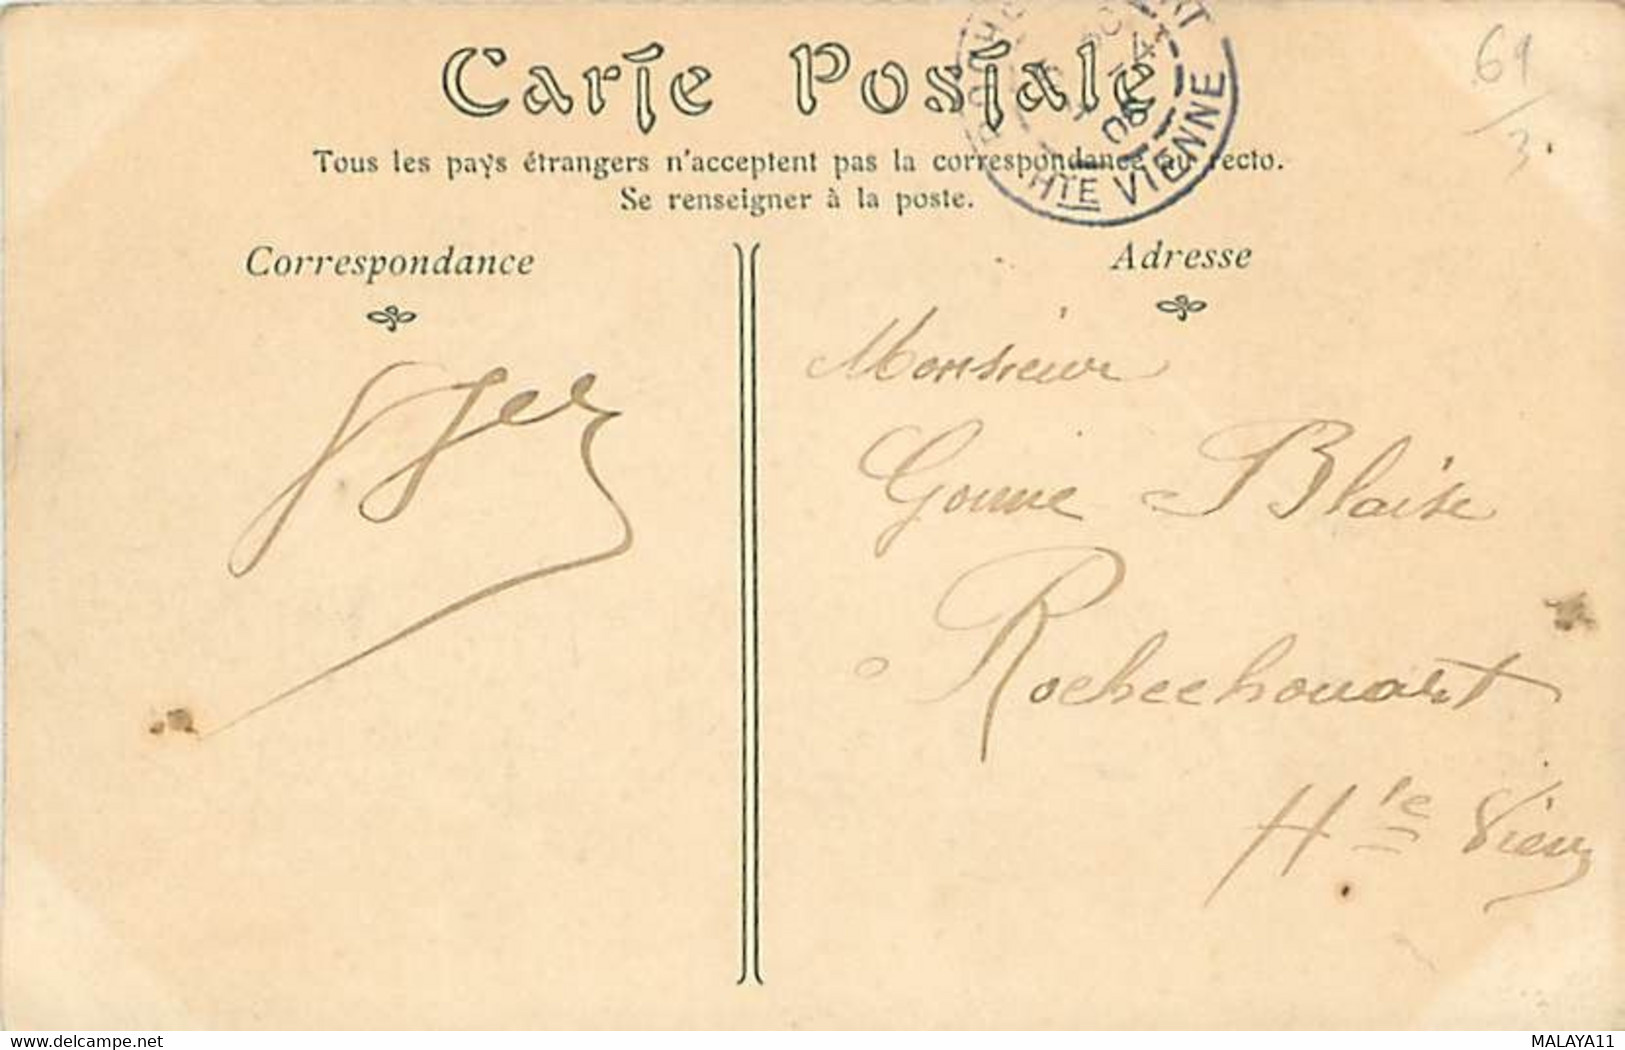 Carte Postale
Tous les pays étrangers n'acceptent pas la correspondance au recto.
Se renseigner à la poste.
HTE VIENNE
06
61
3.
Correspondance
Adresse
Monsieur
Goune Blaise
Rochechouart
Hte Vien
delcampe.net
MALAYA11